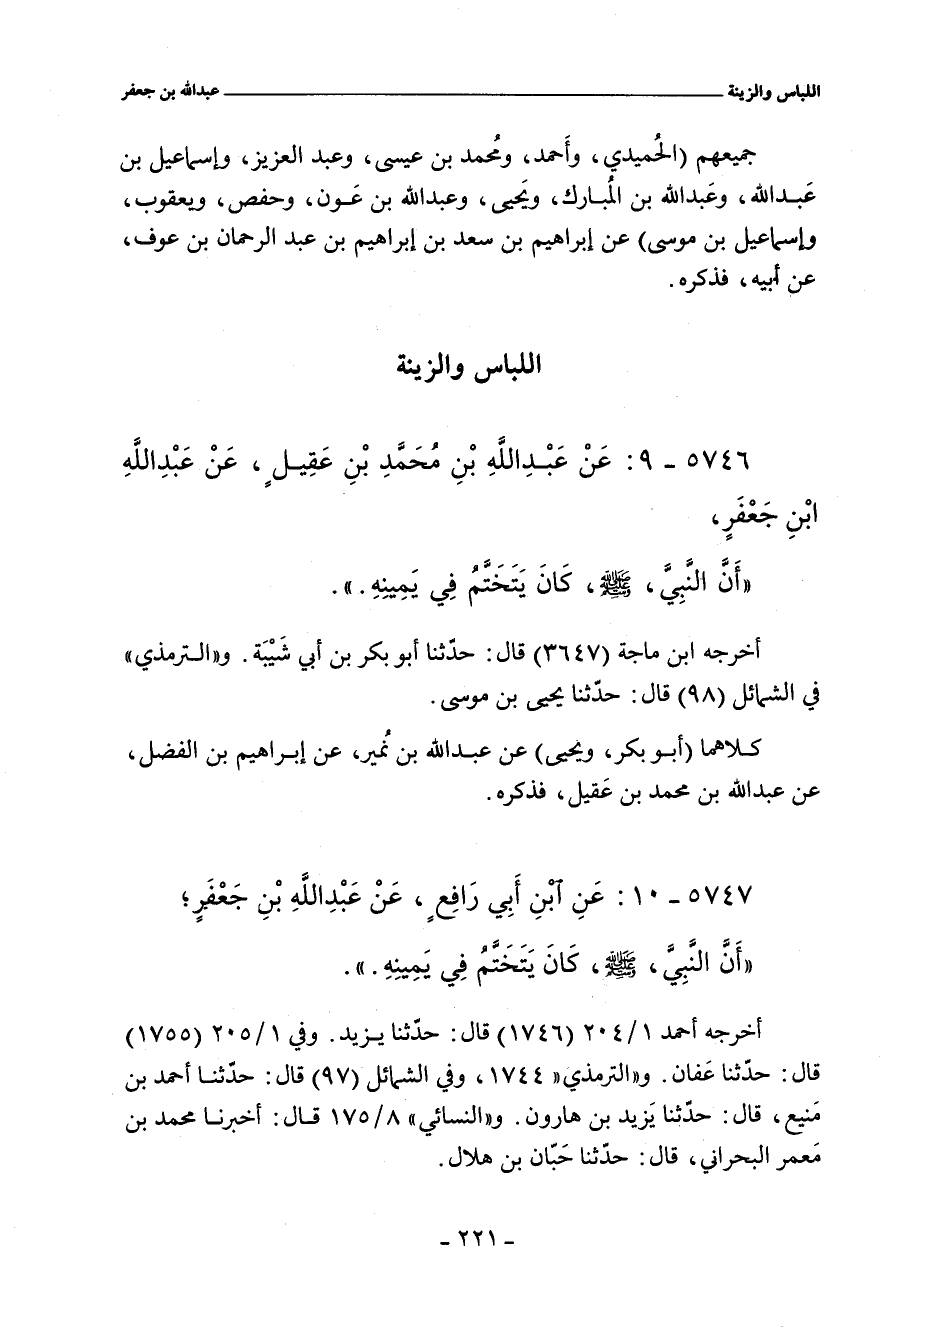 اللباس والزينة ــــــــــــــــــــــــــــــ عبدالله بن جعفر
جميعهم (الحُميدي، وأَحمد، ومُحمد بن عيسى، وعبد العزيز، وإسماعيل بن
عَبـدالله، وعَبدالله بن المُبـارك، ويَحيى، وعبدالله بن عَـون، وحفص، ويعقوب،
وإسماعيل بن موسى) عن إبراهيم بن سعد بن إبراهيم بن عبد الرحمان بن عوف،
عن أبيه، فذكره.
اللباس والزينة
٥٧٤٦ ـ ٩: عَنْ عَبْـدِاللَّهِ بْنِ مُحَمَّدِ بْنِ عَقِيـلٍ، عَنْ عَبْدِاللَّهِ
ابْنِ جَعْفَرٍ،
«أَنَّ النَّبِيَّ، ﷺ، كَانَ يَتَخَتَّمُ فِي يَمِينِهِ.».
أخرجه ابن ماجة (٣٦٤٧) قال: حدّثنا أبو بكر بن أبي شَيْبَة. و«الـترمذي»
في الشمائل (٩٨) قال: حدّثنا يحيى بن موسى.
كـلاهما (أبـو بكر، ويحيى) عن عبـدالله بن نُمير، عن إبـراهيم بن الفضل،
عن عبدالله بن محمد بن عَقيل، فذكره.
٥٧٤٧ ـ ١٠: عَنِ ٱبْنِ أَبِي رَافِعٍ، عَنْ عَبْدِاللَّهِ بْنِ جَعْفَرٍ؛
«أَنَّ النَّبِيَّ، ﷺ، كَانَ يَتَخَتَّمُ فِي يَمِينِهِ.».
أخرجه أحمد ٢٠٤/١ (١٧٤٦) قال: حدّثنا يـزيد. وفي ٢٠٥/١ (١٧٥٥)
قال: حدّثنا عَفان. و«الترمذي» ١٧٤٤، وفي الشمائل (٩٧) قال: حدّثنـا أحمد بن
مَنيع، قال: حدّثنا يَزيد بن هارون. و«النسائي» ١٧٥/٨ قـال: أخبرنـا محمد بن
مَعمر البحراني، قال: حدّثنا حَبّان بن هلال.
ـ ٢٢١ ـ